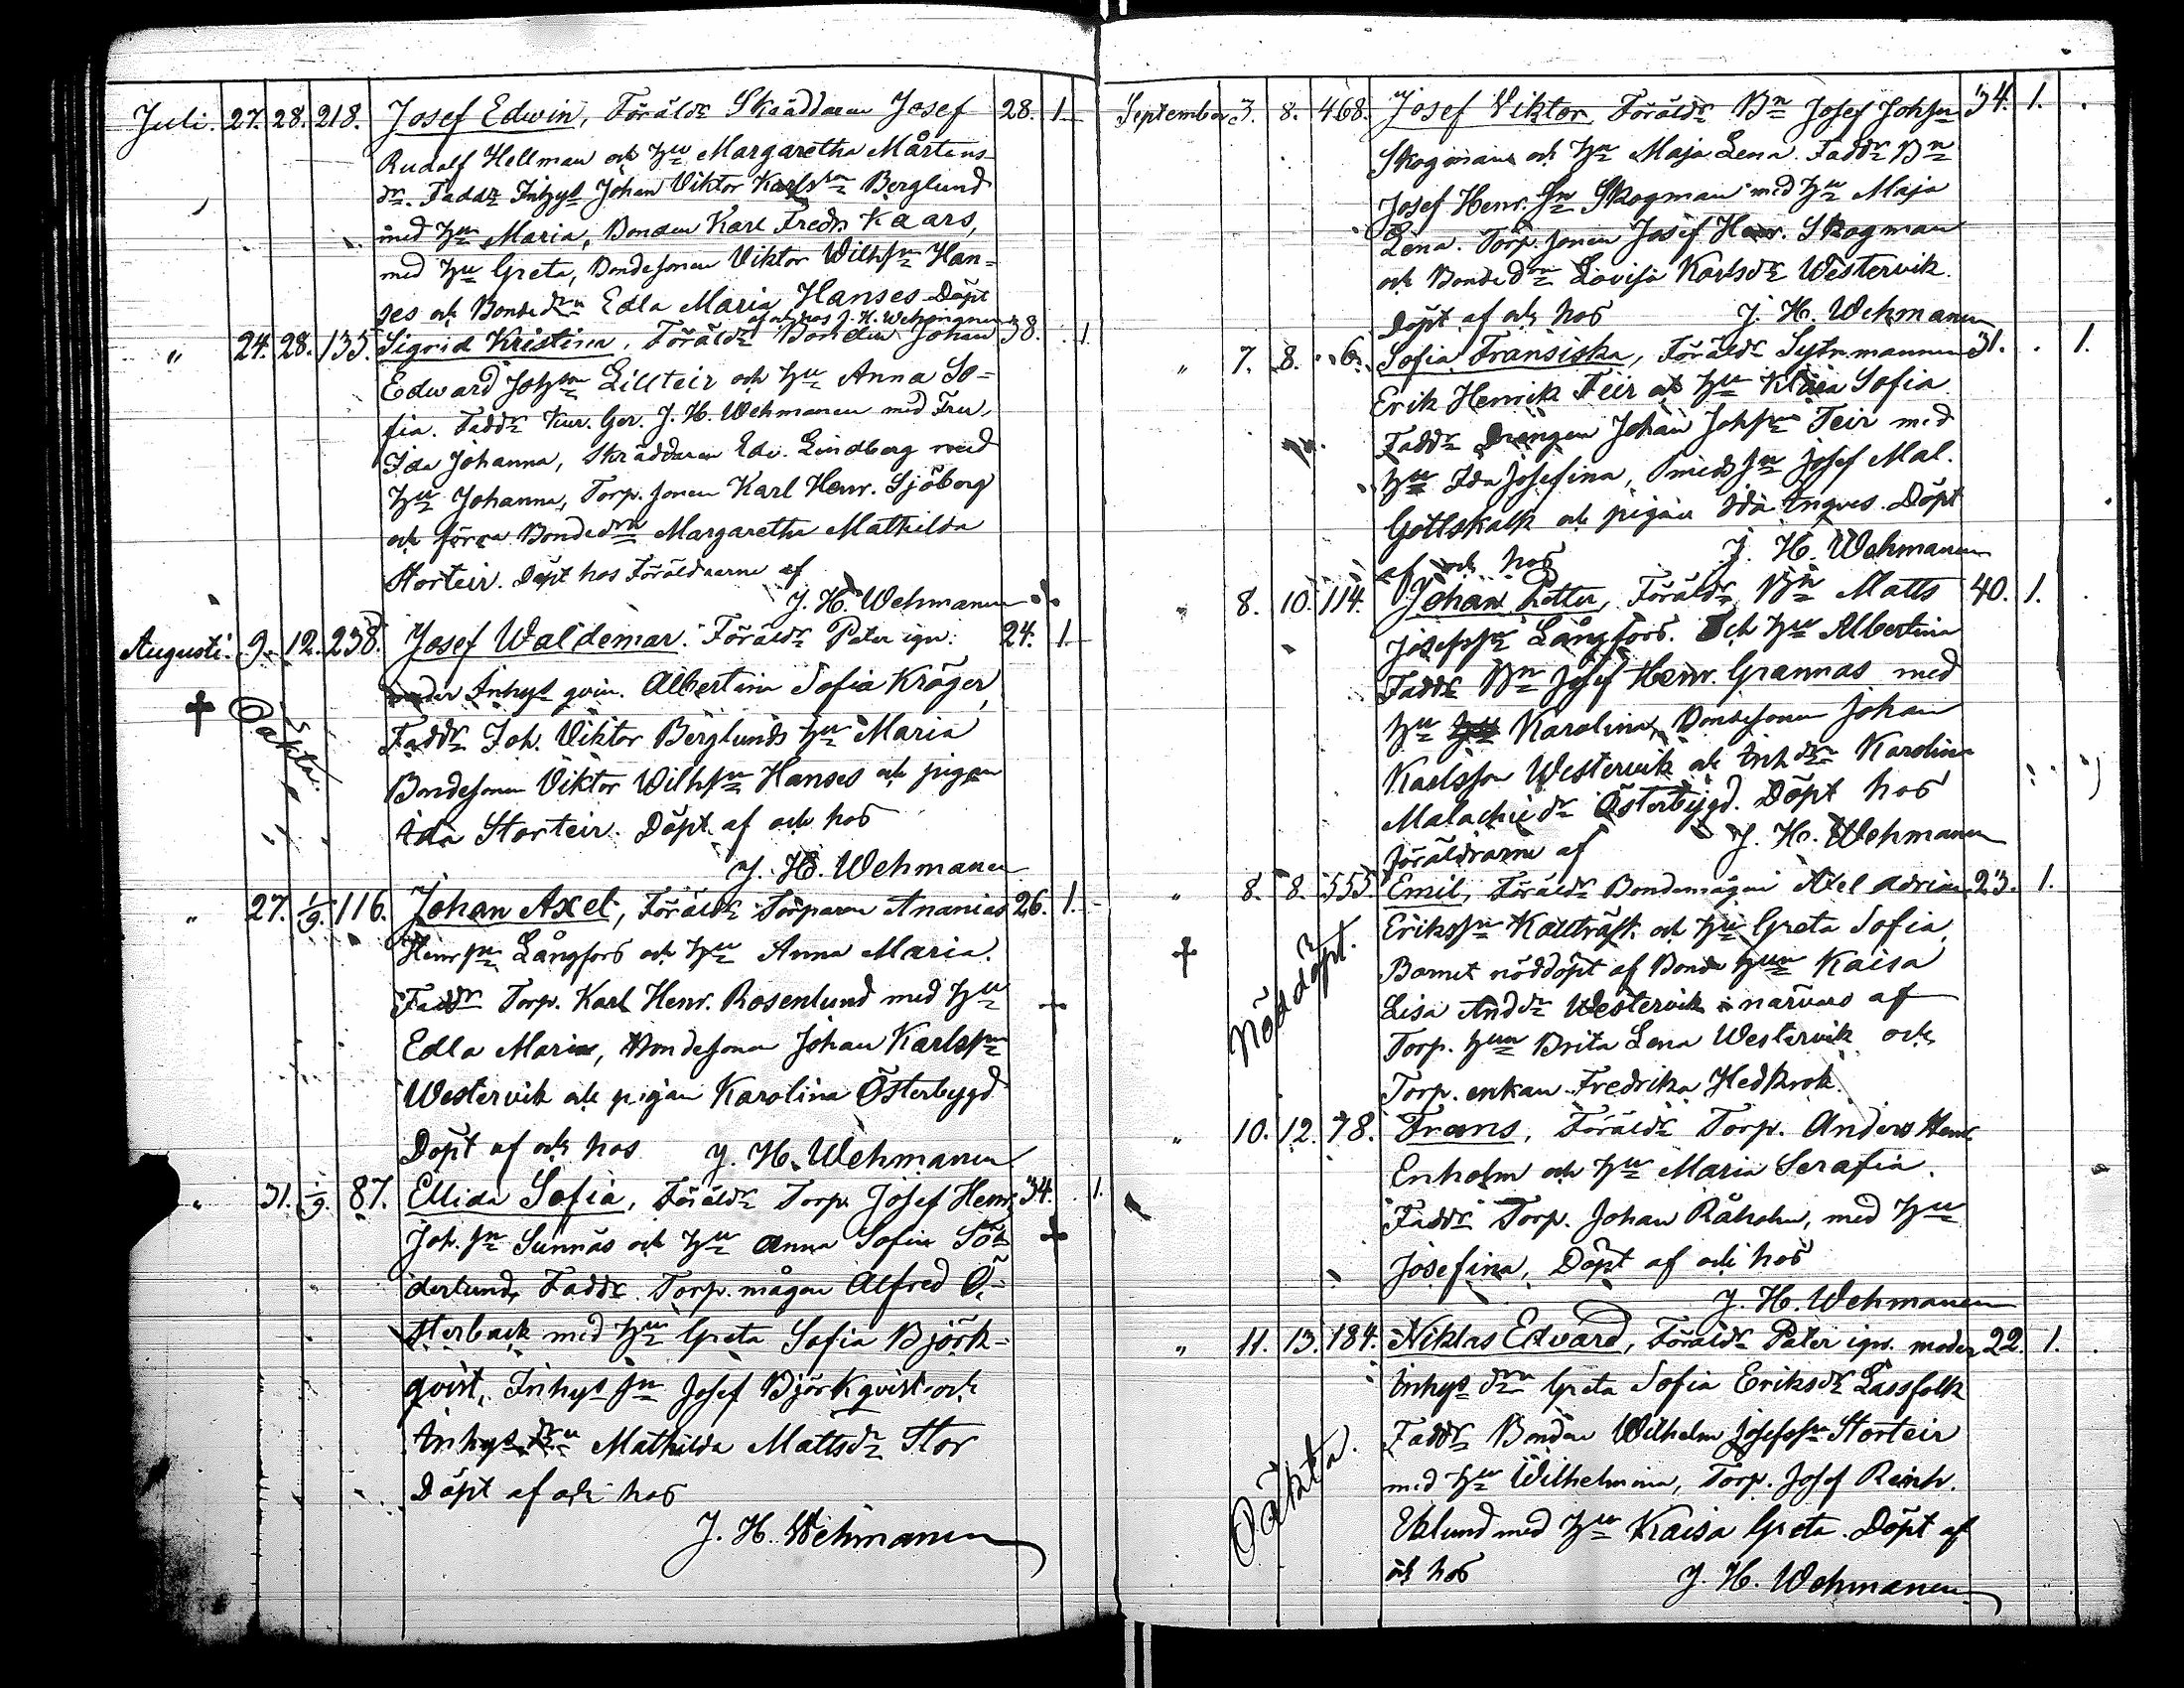 Juli. 27. 28. 218. Josef Edwin, Föräldr Skräddaren Josef 28. 1.
Rudolf Hellman och hu Margaretha Mårtens-
dr. Faddr Inhys Johan Viktor Karlsson Berglund
med hu Maria, Bonden Karl Fredr. Kaars,
med hu Greta, Bondesonen Viktor Wilhsn Han-
ses och Bonde drn Edla Maria Hanses Döpt
af och hos J. H. Wehmanen
" 24. 28. 135. Sigrid Kristina, Föräldr Bonden Johan 38. 1
Edward Johsson Lillteir och hu Anna So-
fia. Faddr J. H. Wehmanen med Fru,
Ida Johanna, Skräddaren Edv. Lindberg med
hu Johanna, Torp. sonen Karl Henr. Sjöberg
och förra Bonde drn Margaretha Mathilda
Storteir. Döpt hos Föräldrarne af
J. H. Wehmanen
Augusti. 9. 12. 238. Josef Waldemar. Föräldr Pater ign. 24. 1.
moder Inhys qvin. Albertina Sofia Kröger,
Oäkta.
Faddr Joh. Viktor Berglunds hu Maria
Bondesonen Viktor Wilhsn Hanses och pigan
Ida Storteir. Döpt af och hos
J. H. Wehmanen
" 27. 1/9. 116. Johan Axel, Föräldr Torparen Ananias 26. 1.
Henrsn Långfors och hu Anna Maria.
Faddr Torp. Karl Henr. Rosenlund med hu
Edla Maria, Bondesonen Johan Karlssn
Westervik och pigan Karolina Österbygd
Döpt af och hos J. H. Wehmanen
" 31. 1/9. 87. Ellida Sofia, Föräldr Torp. Josef Henr. 34. 1.
Joh. sn Sunnäs och hu Anna Sofia Sö-
derlund, Faddr Torp. mågen Alfred Ö-
sterback med hu Greta Sofia Björk-
qvist, Inhys sn Josef Björkqvist och
Inhys drn Mathilda Mattsdr Stor
Döpt af och hos
J. H. Wehmanen
September. 3. 8. 468. Josef Viktor Föräldr Bn Josef Johsn 34. 1.
Skogman och hu Maja Lena. Faddr Bn
Josef Henr. sn Skogman med hu Maja
Lena. Torp. sonen Josef Henr. Skogman
och Bonde drn Lovisa Karlsdr Westervik.
Döpt af och hos J. H. Wehmanen
" 7. 8. 6. Sofia Fransiska, Föräldr Sytnmannen 31. 1.
Erik Henrik Teir och hu Sofia
Faddr Drängen Johan Johssn Teir med
hu Ida Josefina, Smeds sn Josef Mal.
Gottskalk och pigan Ida Ingves. Döpt
af och hos J. H. Wehmanen
" 8. 10. 114. Johan Petter, Föräldr Bn Matts 40. 1.
Josefssn Långfors. Och hu Albertina
Faddr Bn Josef Henr. Grannas med
hu Karolina, Bondesonen Johan
Karlsson Westervik och Inh drn Karolina
Malachiedr Österbygd. Döpt hos
föräldrarne af J. H. Wehmanen
" 8. 8. 555. Emil, Föräldr Bondemågen Axel Adrian 23. 1.
Nöddöpt.
Erikssn Kallträsk och hu Greta Sofia,
Barnet nöddöpt af Bonde hun Kaisa
Lisa Anddr Westervik i närvaro af
Torp. hun Brita Lena Westervik och
Torp. enkan Fredrika Hedkrok.
" 10. 12. 78. Frans, Föräldr Torp. Anders Henr.
Enholm och hu Maria Serafia.
Faddr Torp. Johan Råholm, med hu
Josefina, Döpt af och hos
J. H. Wehmanen
" 11. 13. 184. Niklas Edvard, Föräldr Pater ign. moder 22. 1.
Inhys drn Greta Sofia Eriksdr Lassfolk
Oäkta.
Faddr Bonden Wilhelm Josefssn Storteir
med hu Wilhelmina, Torp. Josef Reinh.
Eklund med hu Kaisa Greta. Döpt af
och hos J. H. Wehmanen